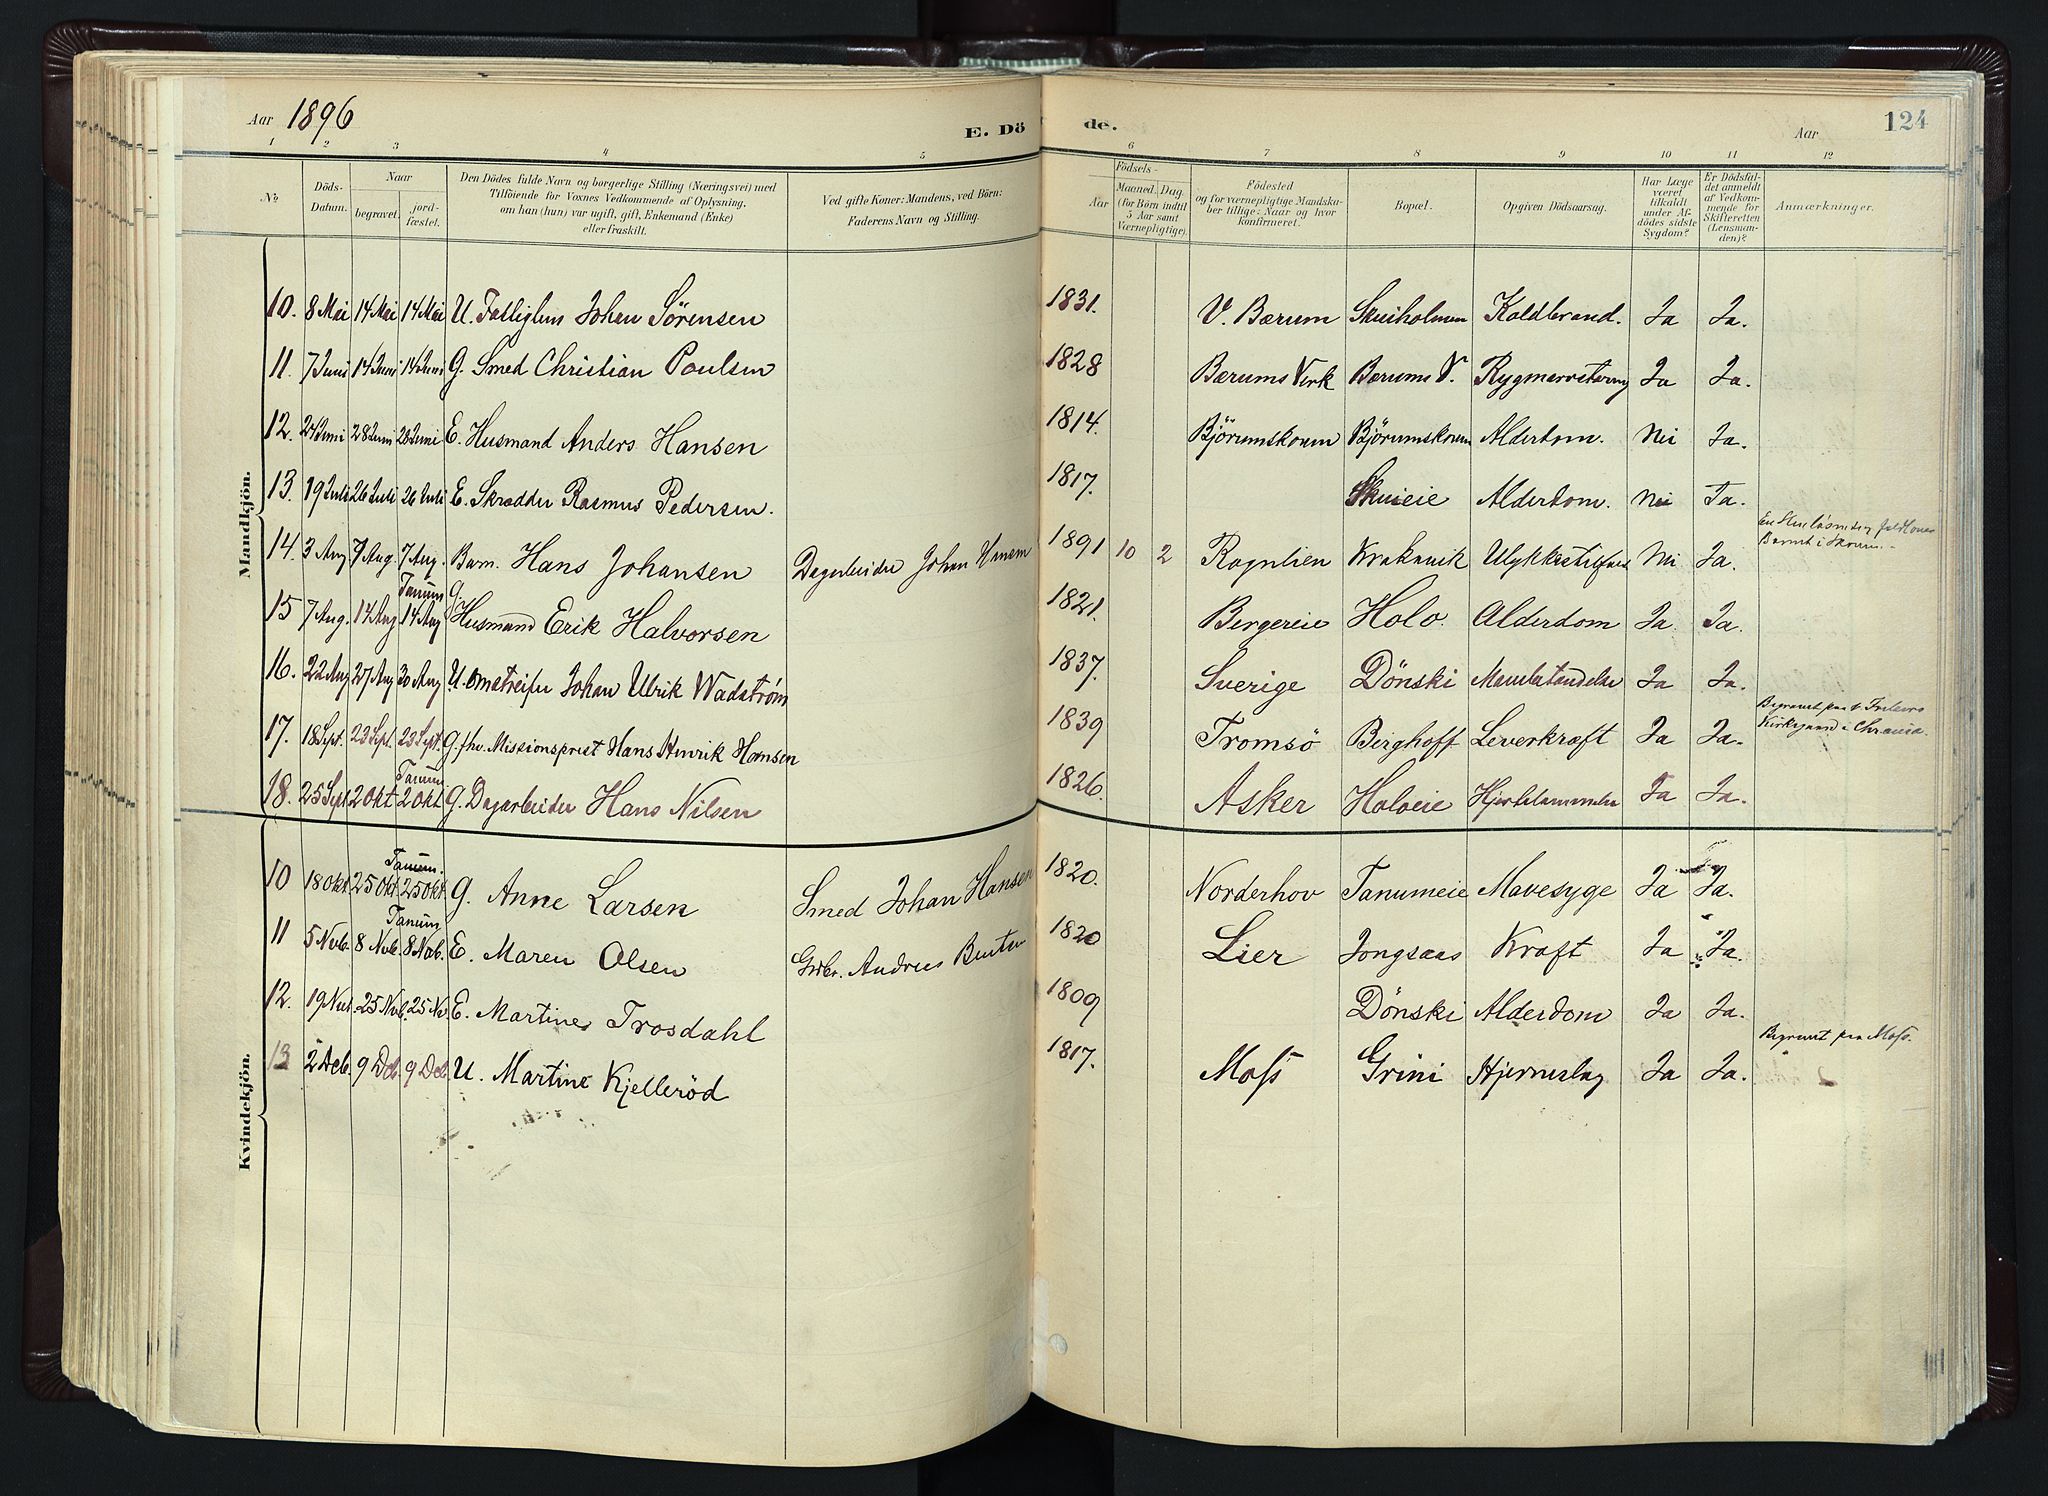 Aar 1896
E. Dö de.
Aar
124
1 2 3 4 5 6 7 8 9 10 11 12
No.
Döds-Datum.
Naar
begravet.
jord-fæstet.
Den Dödes fulde Navn og borgerlige Stilling (Næringsvei) med
Tilföiende for Voxnes Vedkommende af Oplysning,
om han (hun) var ugift, gift, Enkemand (Enke)
eller fraskilt.
Ved gifte Koner: Mandens, ved Börn:
Faderens Navn og Stilling.
Födsels-
Aar
Maaned. Dag.
(for Börn indtil
5 Aar samt
Værnepligtige).
Födested
og for værnepligtige Mandska-
ber tillige: Naar og hvor
konfirmeret.
Bopæl.
Opgiven Dödsaarsag.
Har Læge
været
tilkaldt
under Af-
dödes sidste
Sygdom?
Er Dödsfal-
det anmeldt
af Vedkom-
mende for
Skifteretten
(Lensman-
den)?
Anmærkninger.
Mandkjön.
10. 8 Mai 14 Mai 14 Mai U. Fattiglem Johan Sørensen 1831. V. Bærum Skuiholmen Koldbrand. Ja Ja.
11. 7 Juni 14 Juni 14 Juni G. Smed Christian Poulsen 1828 Bærums Verk Bærums V. Rygmarvstæring Ja Ja.
12. 24 Juni 28 Juni 28 Juni E. Husmand Anders Hansen 1814. Björumskoum Björumskoum Alderdom. Nei Ja.
13. 19 Juli 26 Juli 26 Juli E. Skrædder Rasmus Pedersen. 1817. Skuieie Alderdom. Nei Ja.
14. 3 Aug 7 Aug. 7 Aug. Barn. Hans Johansen Dagarbeider Johan 1891 10 2 Rognlien Krakavik Ulykkestilfælde Nei Ja.
Tanum G.
15 7 Aug. 14 Aug 14 Aug Husmand Erik Halvorsen 1821. Bergereie Holo. Alderdom Ja Ja.
16. 22 Aug 27 Aug 30 Aug U. Omstreifer Johan Ulrik Wadstrøm 1837. Sverige Dönski Ja Ja.
17. 18 Sept. 23 Sept. 23 Sept. G. fhv. Missionsprest Hans Henrik Hansen 1839 Tromsö Berghoff Leverkræft Ja Ja. Begravet paa Vor Frelsers
Kirkegaard i Chrania.
Tanum
18. 25 Sept 2 Okt 2 Okt. G. Dagarbeider Hans Nilsen 1826. Asker Holoeie Hjertelammelse Ja Ja.
Kvindekjön.
Tanum.
10 18 Okt 25 Okt. 25 Okt. G. Anne Larsen Smed Johan Hansen 1820. Norderhov Tanumeie Mavesyge Ja Ja.
Tanum
11 5 Novb. 8 Novb. 8 Novb. E. Maren Olsen Grbr. Andreas 1820 Lier Jongsaas Kræft Ja Ja.
12. 19 Nov. 25 Nov. 25 N E. Martine Trosdahl 1809 Dönski Alderdom Ja Ja.
13 2 Deb. 9 Deb. 9 Deb. U. Martine Kjellerød 1817. Moss Grini Hjerneslag Ja Ja. Begravet paa Moss.